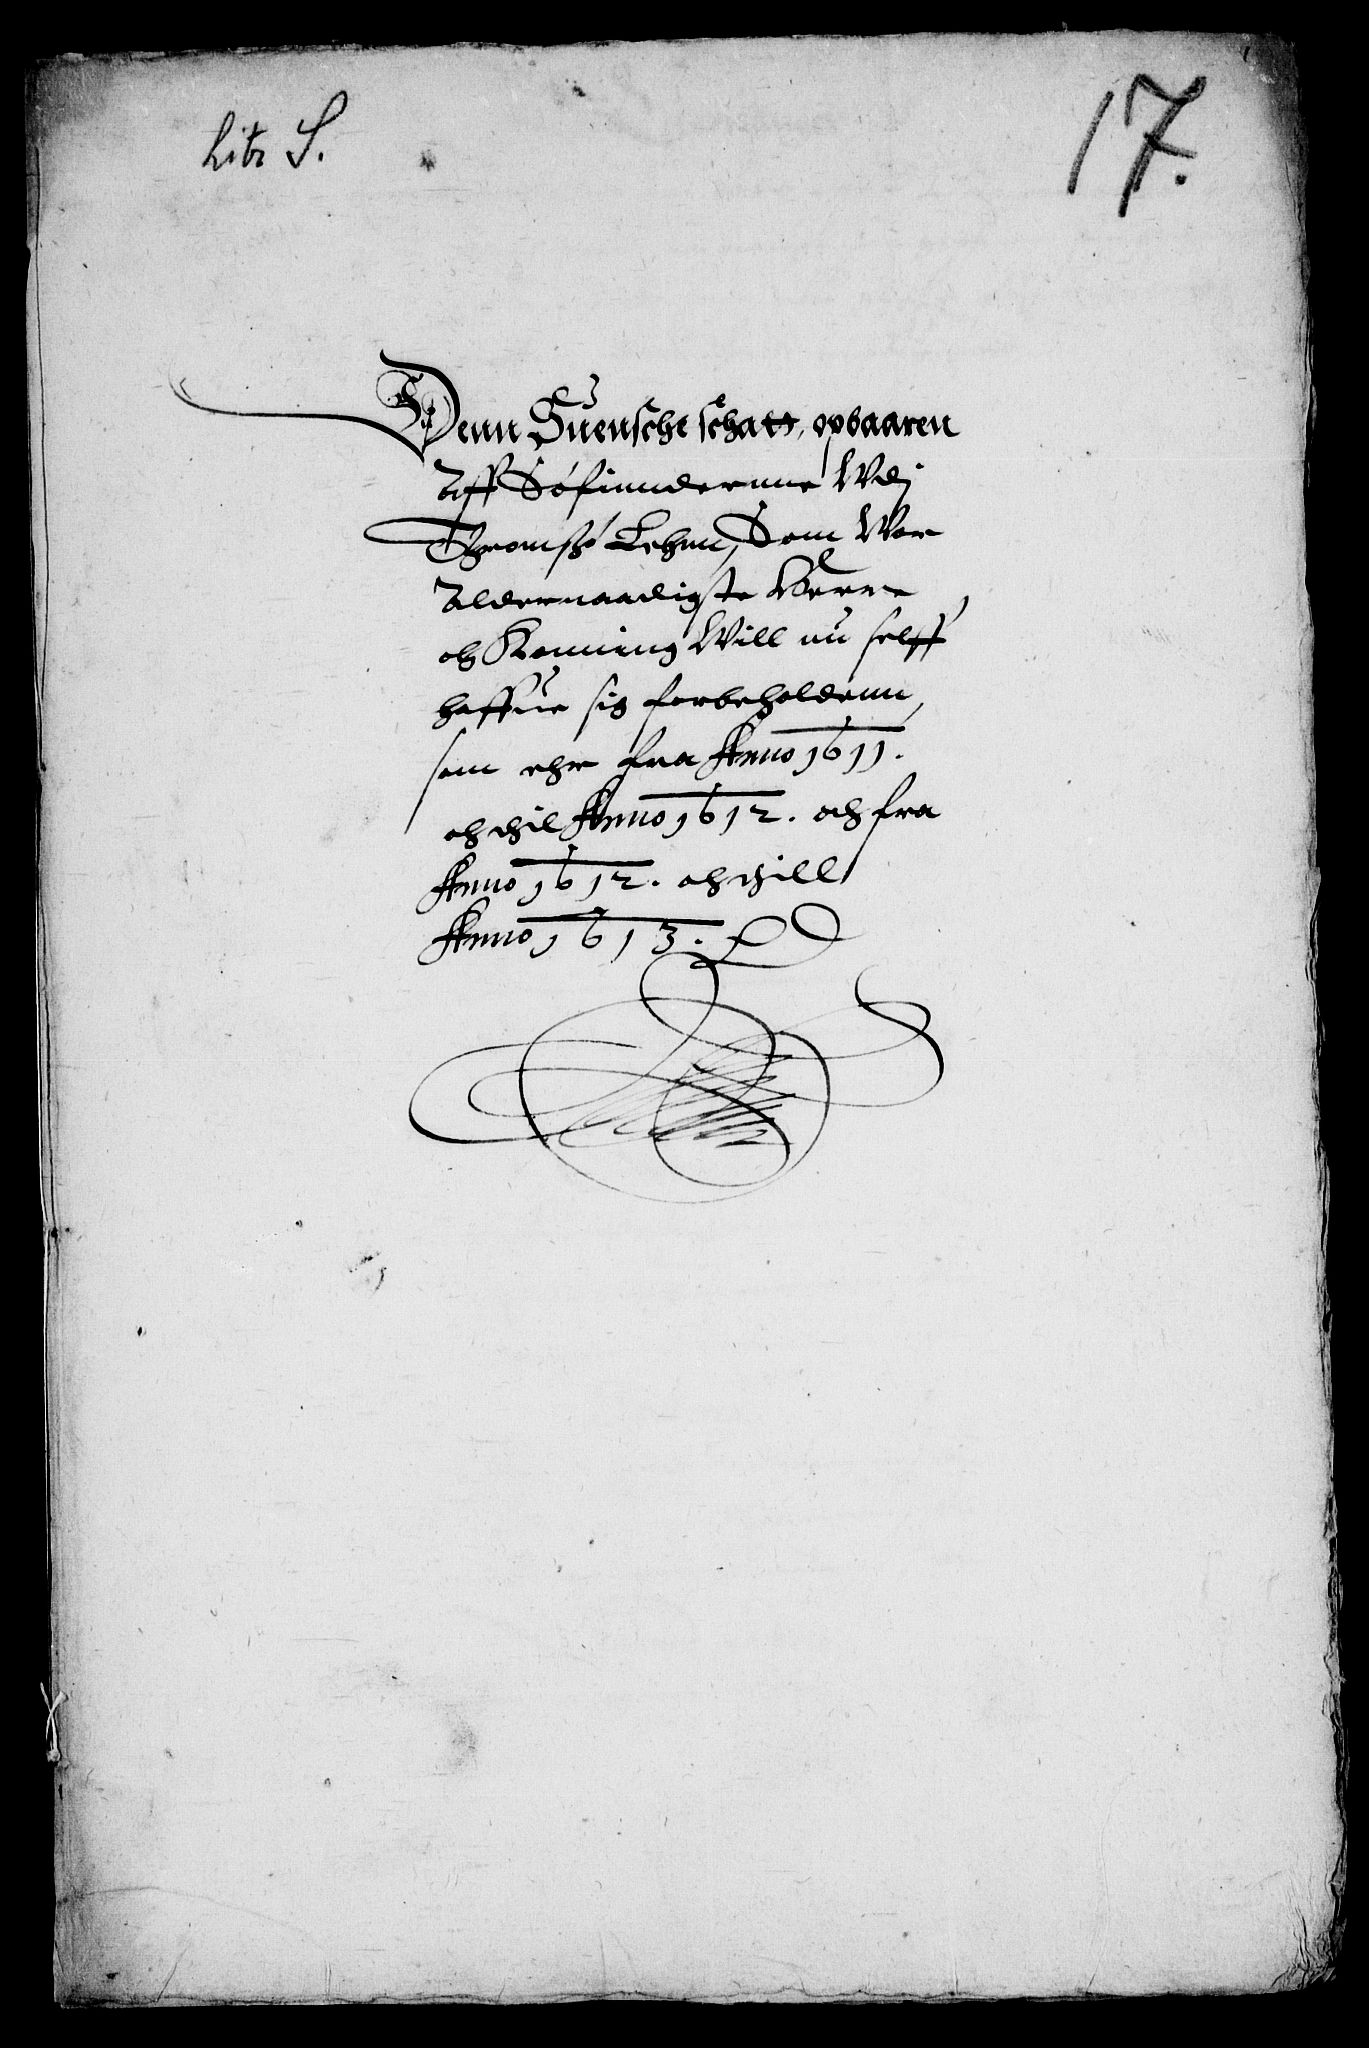 Litr S.
17.
Denn Suensche schatt, opbaaren
Aff Søfinndernne Wdj
Thromsø Lehnn, Som Wor
Aldernaadigste Herre
och Konning Will nu selff
haffue sig forbeholdenn,
som ehr fra Anno 1611.
och thil Anno 1612. och fra
Anno 1612. och thill
Anno 1613.